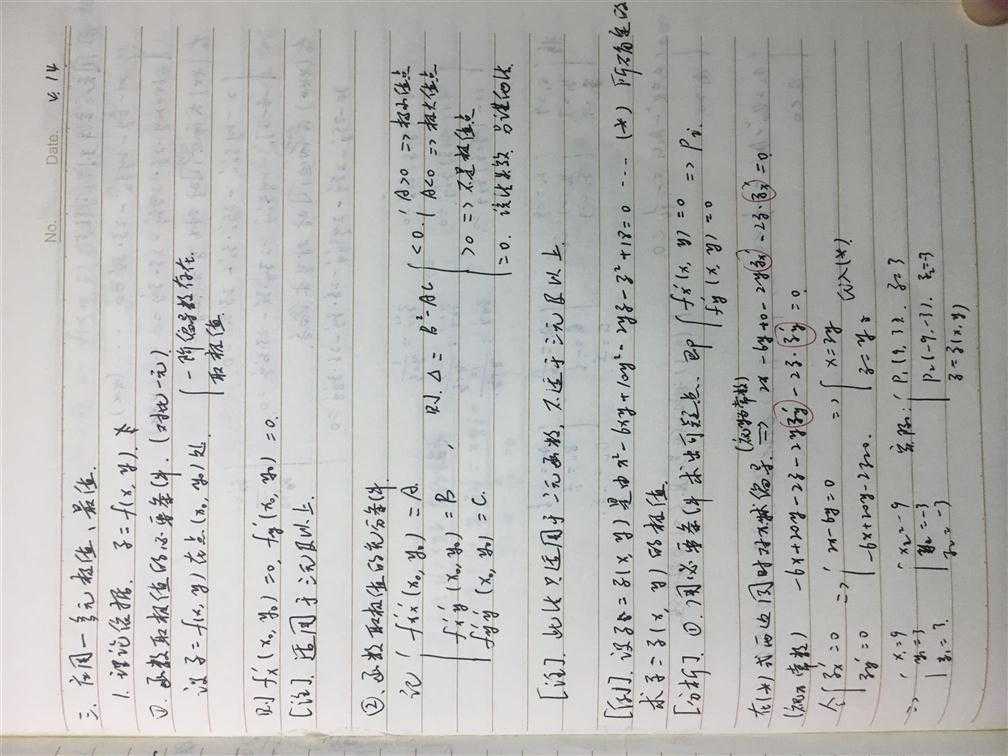 No. Date. 4.14
三. 应用—多元极值、最值.
1. 理论依据. z=f(x,y).
① 函数取极值的必要条件. (对比一元)
设 z=f(x,y)在点(x₀,y₀)处 { 一阶偏导数存在.
取极值
则 f'x(x₀,y₀)=0, f'y(x₀,y₀)=0.
[注]. 适用于三元及以上.
②. 函数取极值的充分条件
记 { f''xx(x₀,y₀)=A.
f''xy(x₀,y₀)=B ,
f''yy(x₀,y₀)=C.
则. Δ=B²-AC { <0. { A>0 => 极小值点
A<0 => 极大值点
>0 => 不是极值点
=0. 该法失效, 另谋他法.
[注]. 此法只适用于二元函数, 不适于三元及以上.
[例]. 设 z=z(x,y)是由x²-6xy+10y²-2yz-z²+18=0 ---- (*) 所确定的
求 z=z(x,y)的极值.
[分析]. ①. 用必要条件求出可疑点. 即 { f'x(x,y)=0 => Pi.
f'y(x,y)=0
在(*)式两边同时对x求偏导. => 2x-6y+0-2y(z'x)-2z·z'x=0.
-6x+20y-2z-2y z'y-2z·z'y=0.
令 { z'x=0 => { 2x-6y=0 => { x=3y 代入(*).
z'y=0 -6x+20y-2z=0. z=y
=> { x₁=9 { x₂=-9
y₁=3 y₂=-3
z₁=3. z₂=-3
{ P₁(9,3). z₁=3
P₂(-9,-3). z₂=-3
z=z(x,y)